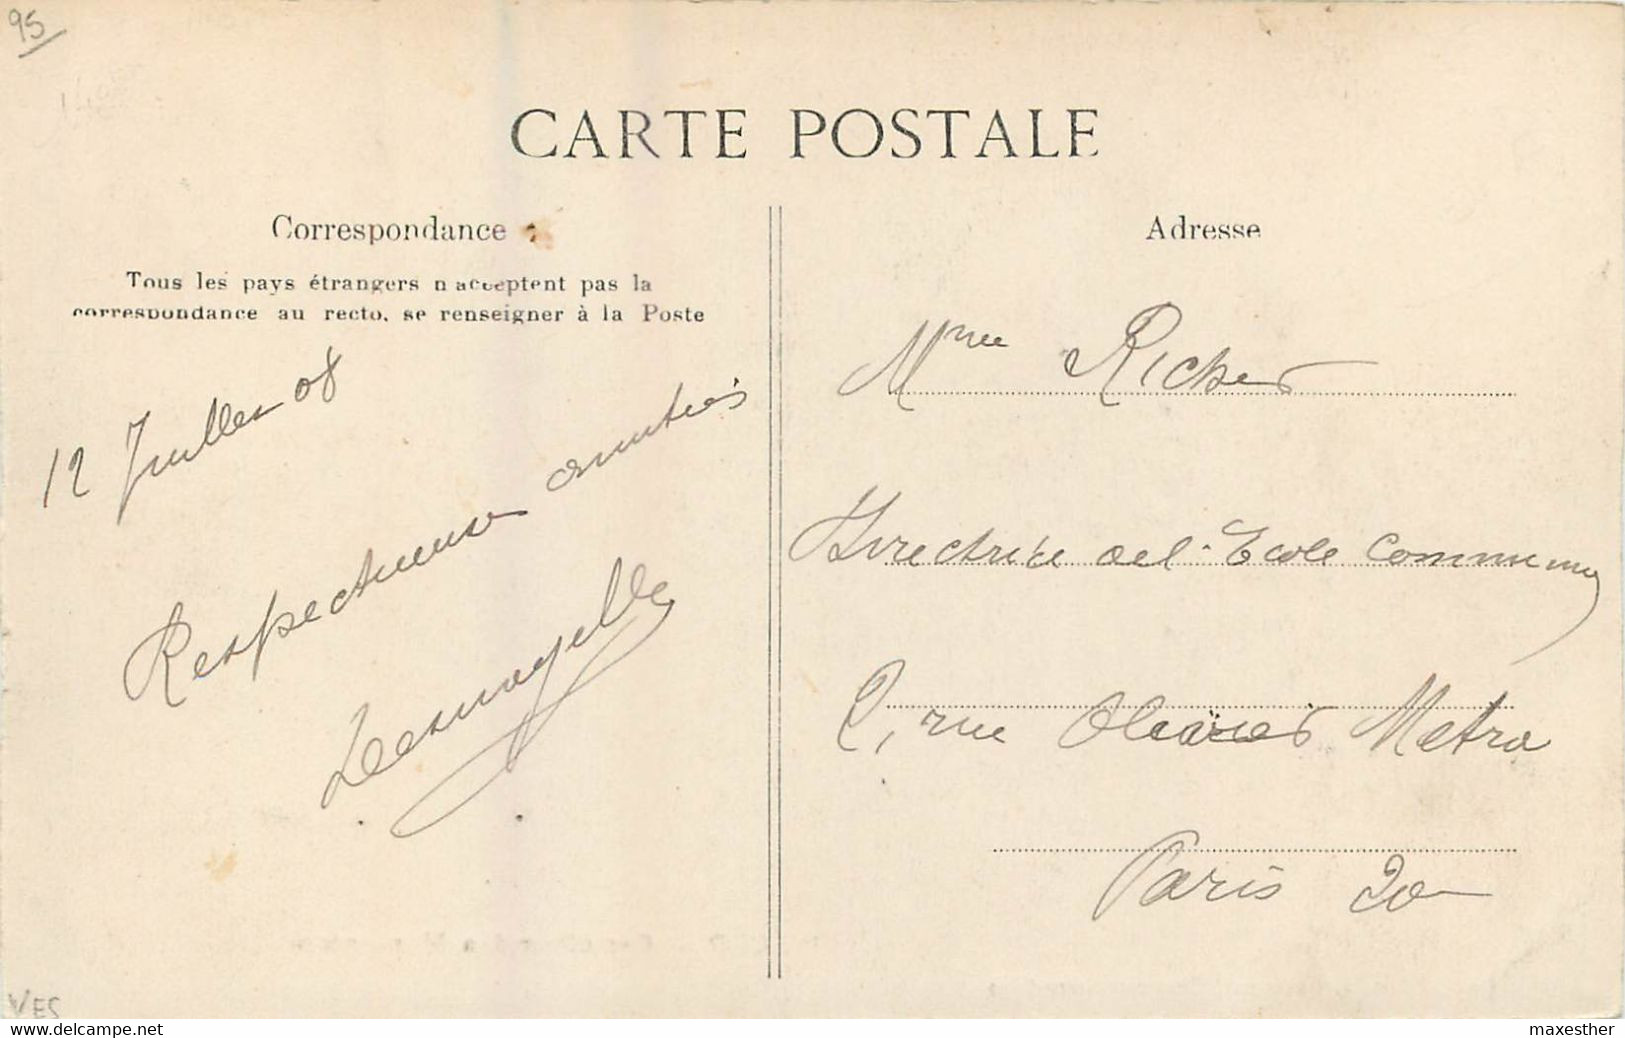 95
CARTE POSTALE
Correspondance
Tous les pays étrangers n'acceptent pas la
correspondance au recto, se renseigner à la Poste
12 Juillet 08
Respectueuses amitiés
Adresse
Mme Richer
Directrice de l'Ecole Commun
2, rue Olivier Metra
Paris 20
VES
www.delcampe.net
maxesther